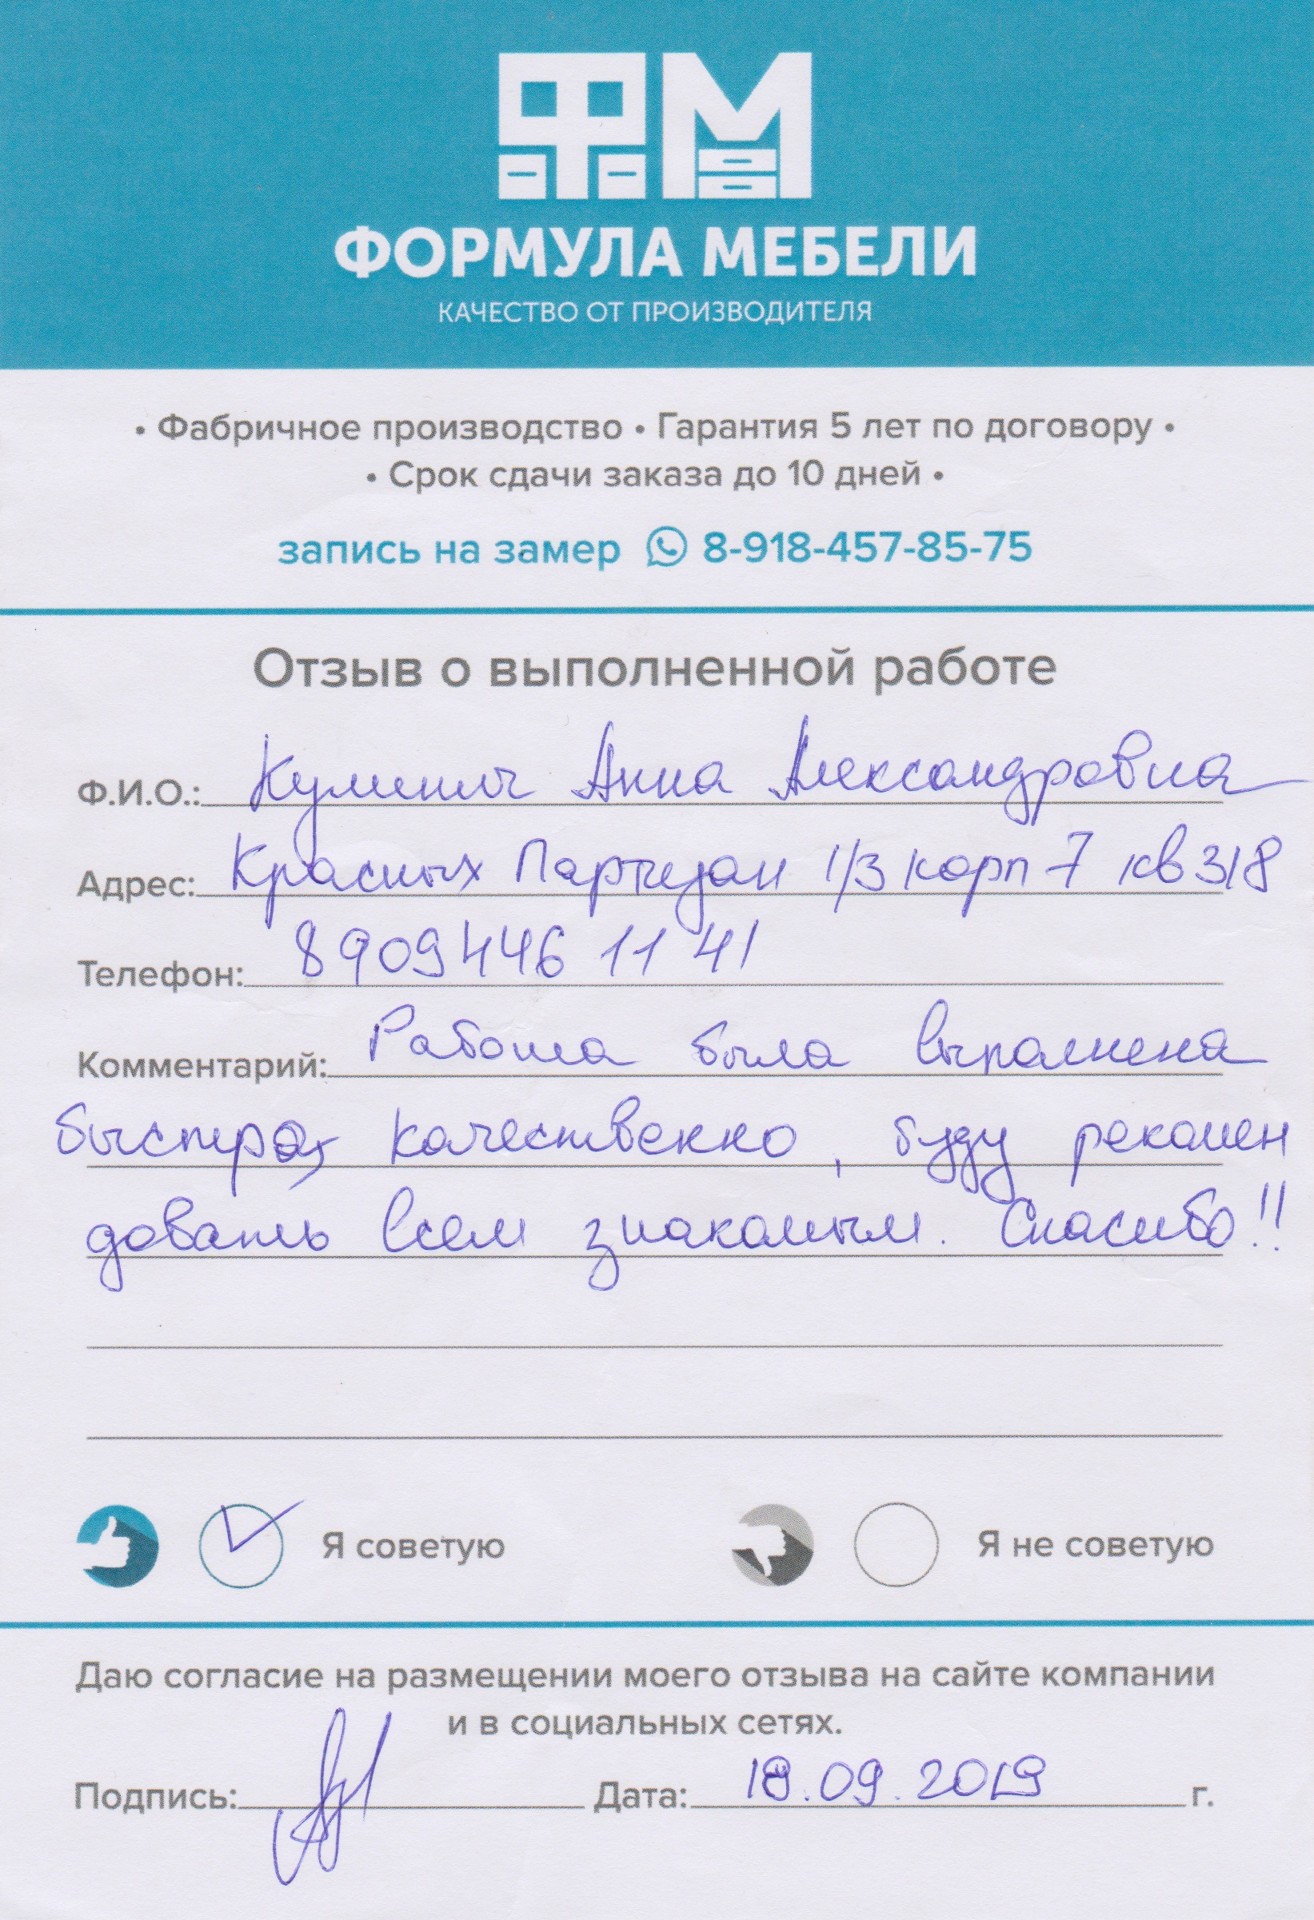 ФМ
ФОРМУЛА МЕБЕЛИ
КАЧЕСТВО ОТ ПРОИЗВОДИТЕЛЯ
• Фабричное производство • Гарантия 5 лет по договору •
• Срок сдачи заказа до 10 дней •
запись на замер 8-918-457-85-75
Отзыв о выполненной работе
Ф.И.О.: Анна Александровна
Адрес: Красных Партизан 1/3 корп 7 кв 318
Телефон: 8 909 446 11 41
Комментарий: Работа была выполнена
быстро, качественно, буду рекомен
довать всем знакомым. Спасибо!!
Я советую Я не советую
Даю согласие на размещении моего отзыва на сайте компании
и в социальных сетях.
Подпись: Дата: 18.09.2019 г.